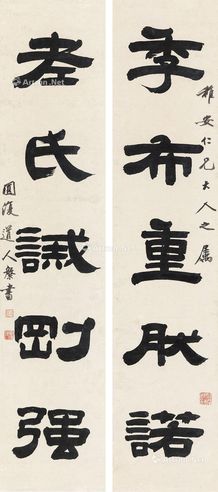 稚安仁兄大人之屬
季布重肰諾
老氏誡剛强
道人書
Artron.Net